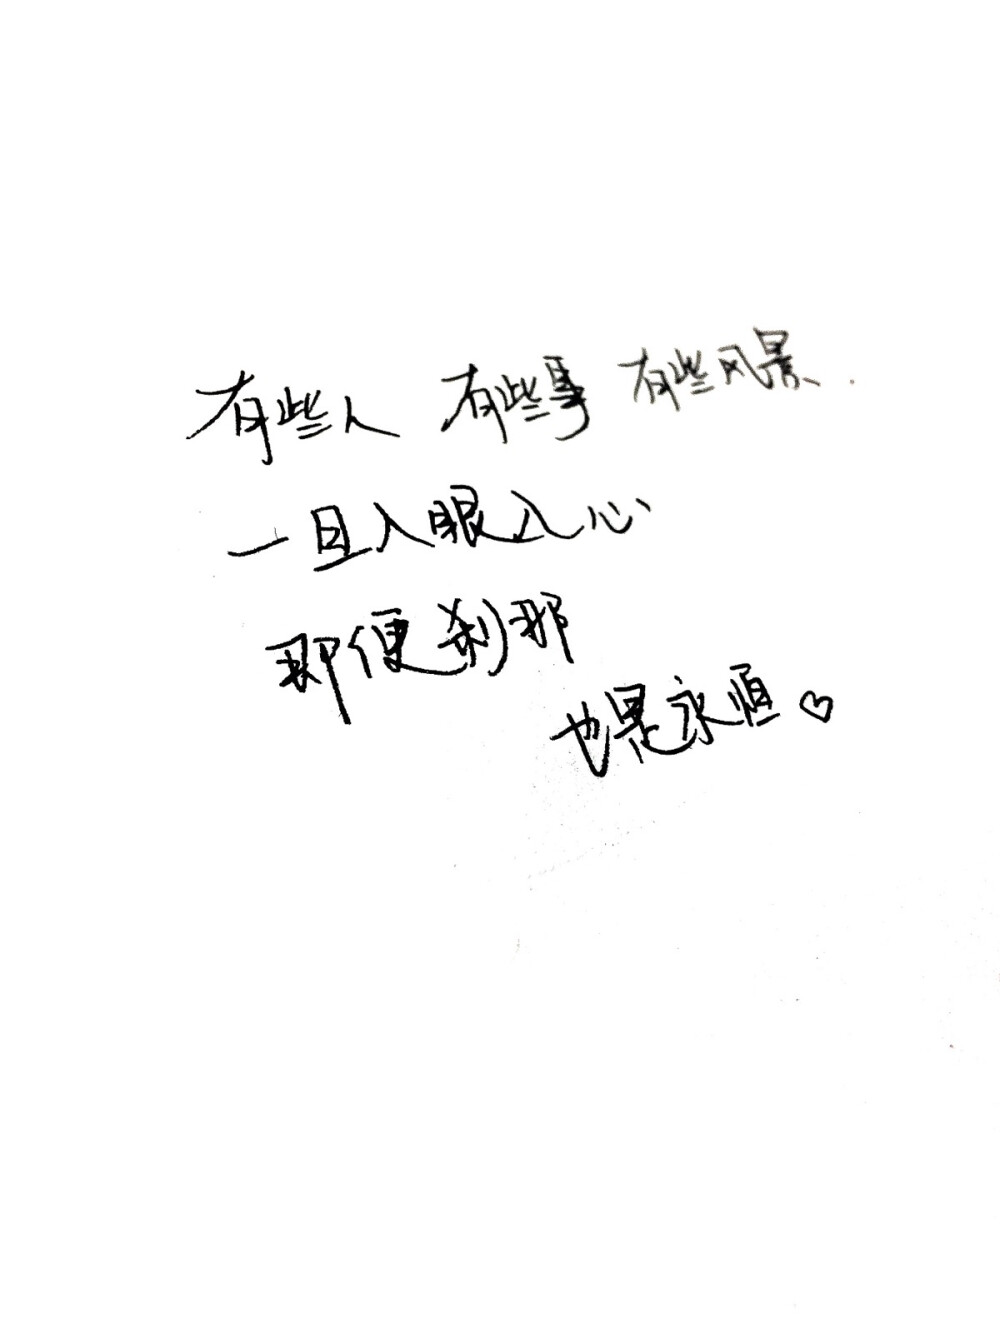 有些人 有些事 有些风景.
一旦入眼入心
即便刹那
也是永恒♡